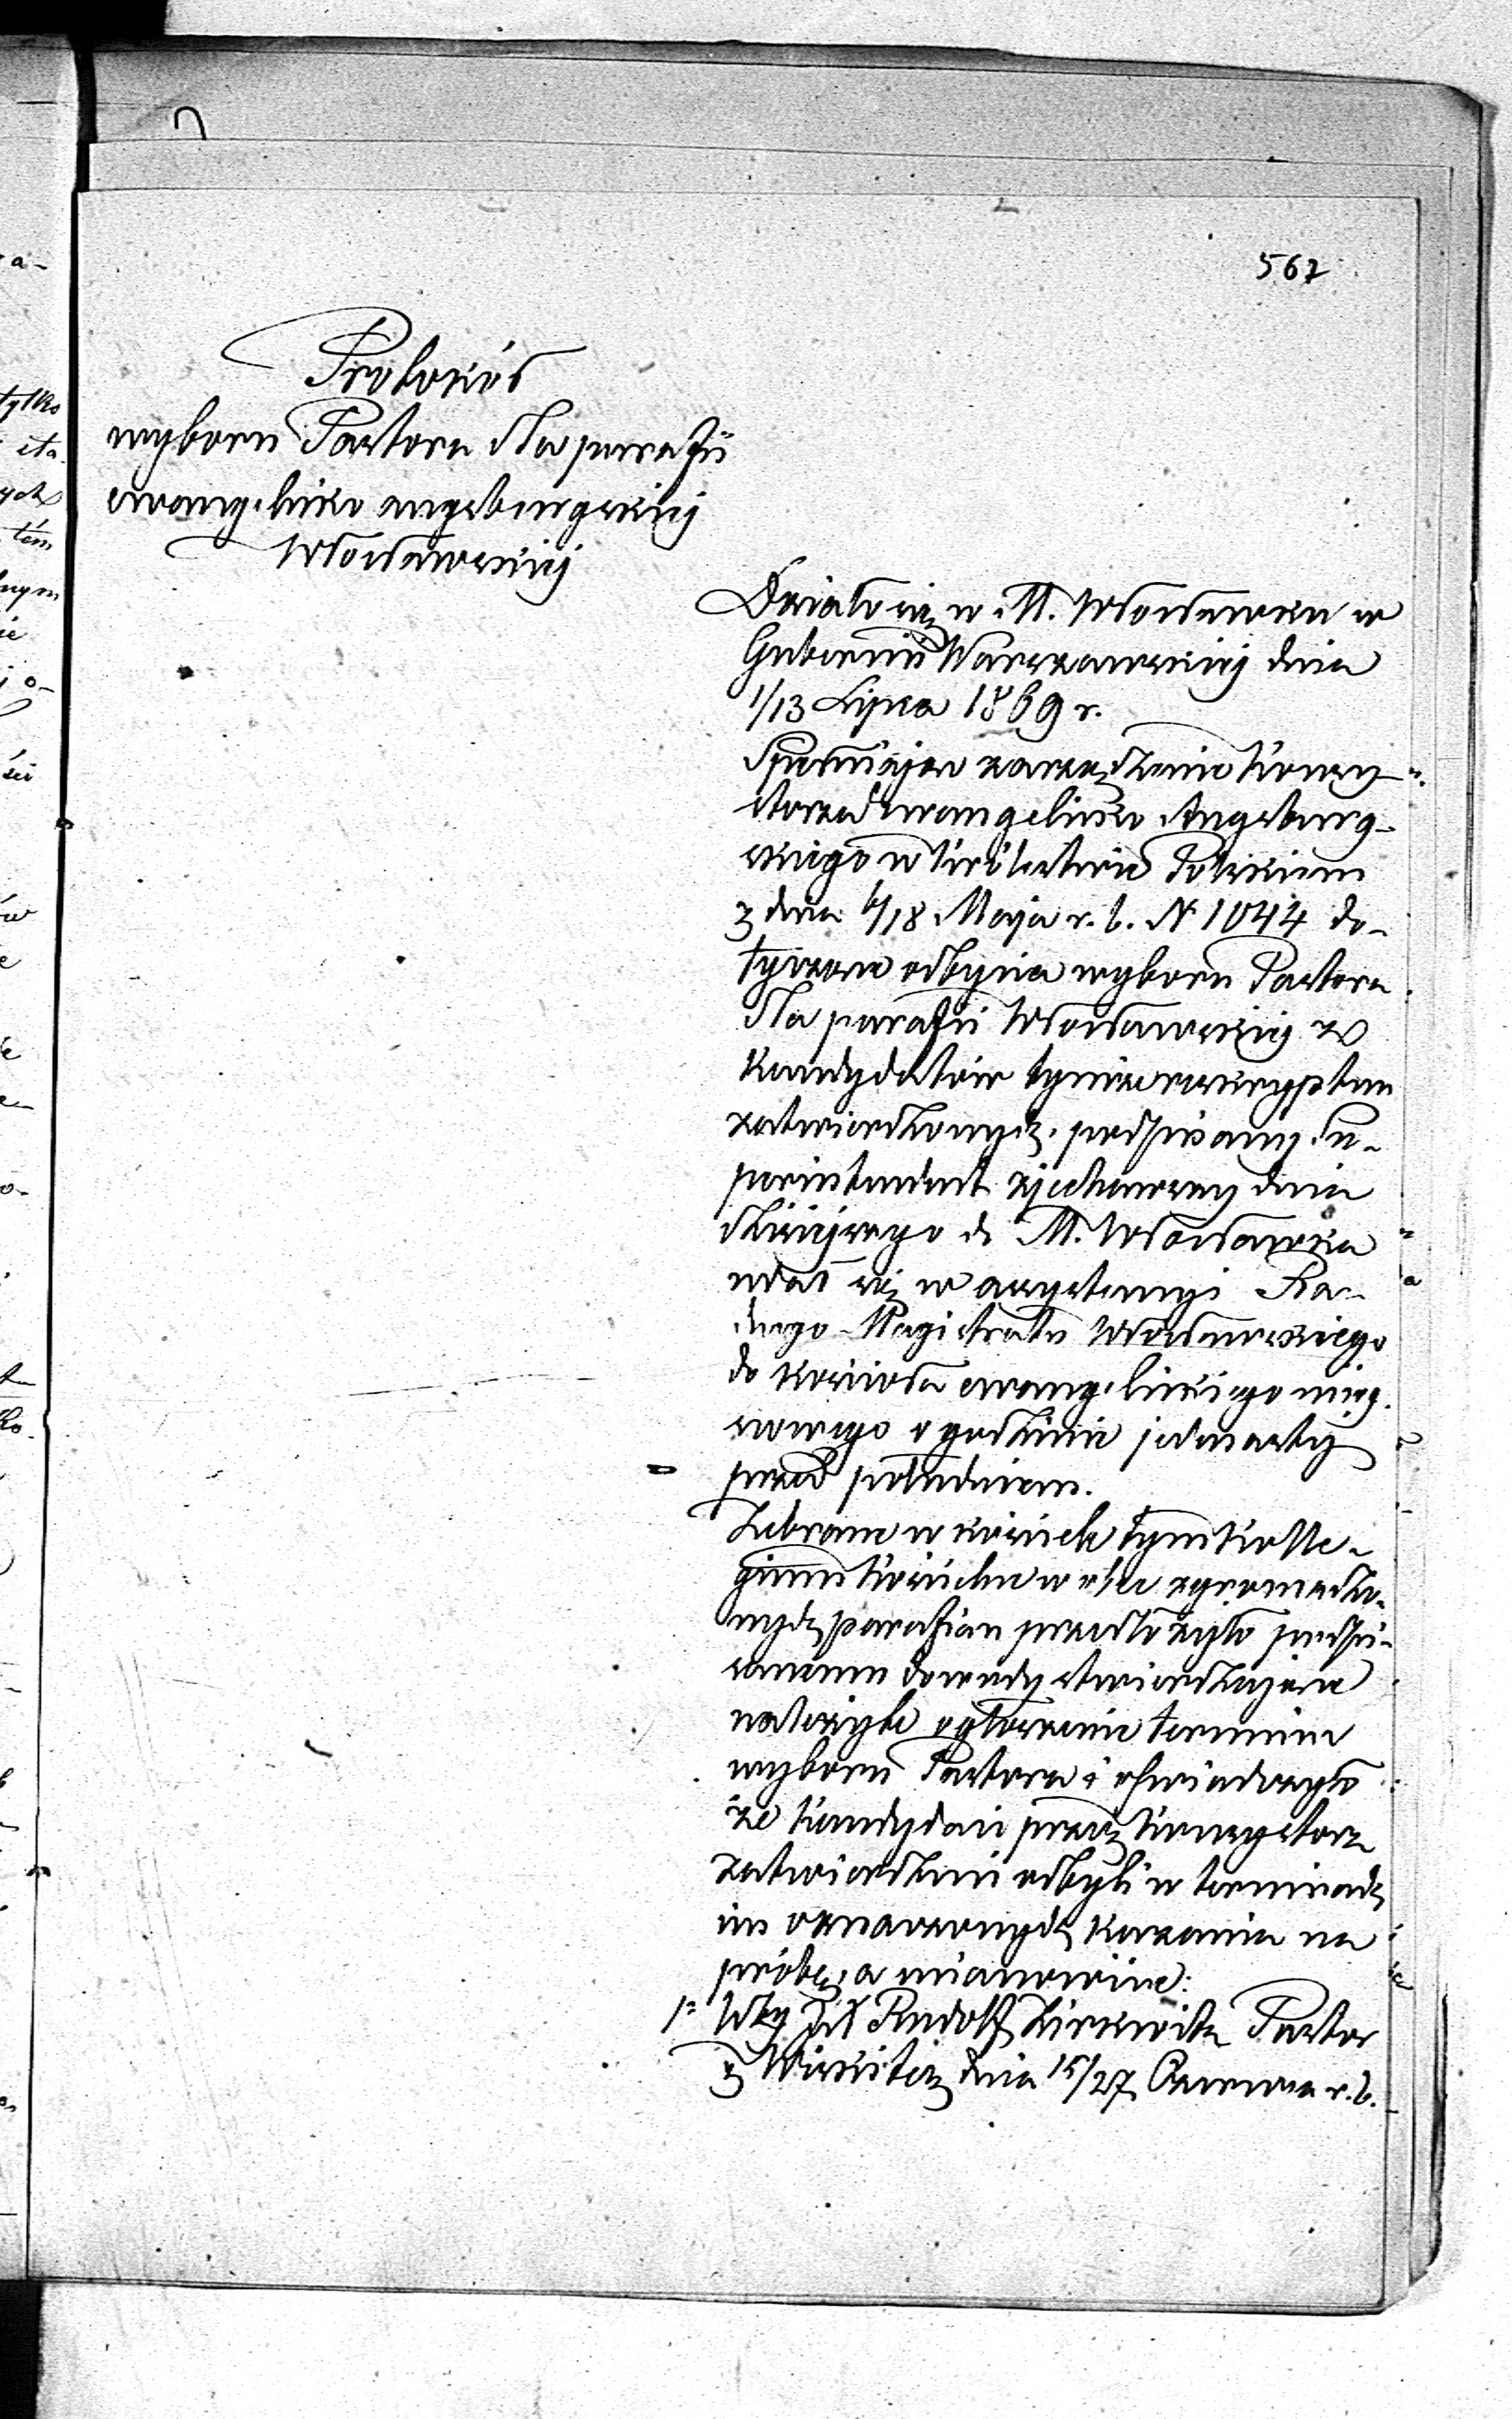 567
Protokół
wyboru Pastora dla parafii
ewangelicko augsburgskiej
Włocławskiej
Działo się w M. Włocławku w
Gubernii Warszawskiej dnia
1/13 Lipca 1869 r.
Spełniając zarządzenie Konsy-
storza Ewangelicko Augsburg-
skiego w Królestwie Polskiem
z dnia 6/18 Maja r. b. N 1044 do-
tyczące odbycia wyboru Pastora
dla parafii Włocławskiej z
kandydatów tymże reskryptem
zatwierdzonych, podpisany Su-
perintendent zjechawszy dnia
dzisiejszego do M. Włocławka
udał się w asystencyi Ra-
dnego Magistratu Włocławskiego
do kościoła ewangelickiego miej-
scowego o godzinie jedenastej
przed południem.
Zebrane w kościele tym Kolle-
gium Kościelne w obec zgromadzo-
nych parafian przedłożyło podpi-
sanemu dowody stwierdzające
należyte ogłoszenie terminu
wyboru Pastora i oświadczyło
że kandydaci przez Konsystorz
zatwierdzeni odbyli w terminach
im oznaczonych kazania na
próbę, a mianowicie:
1º Wny Rudolf Zirkwitz Pastor
z Wiskitek dnia 15/27 Czerwca r. b.